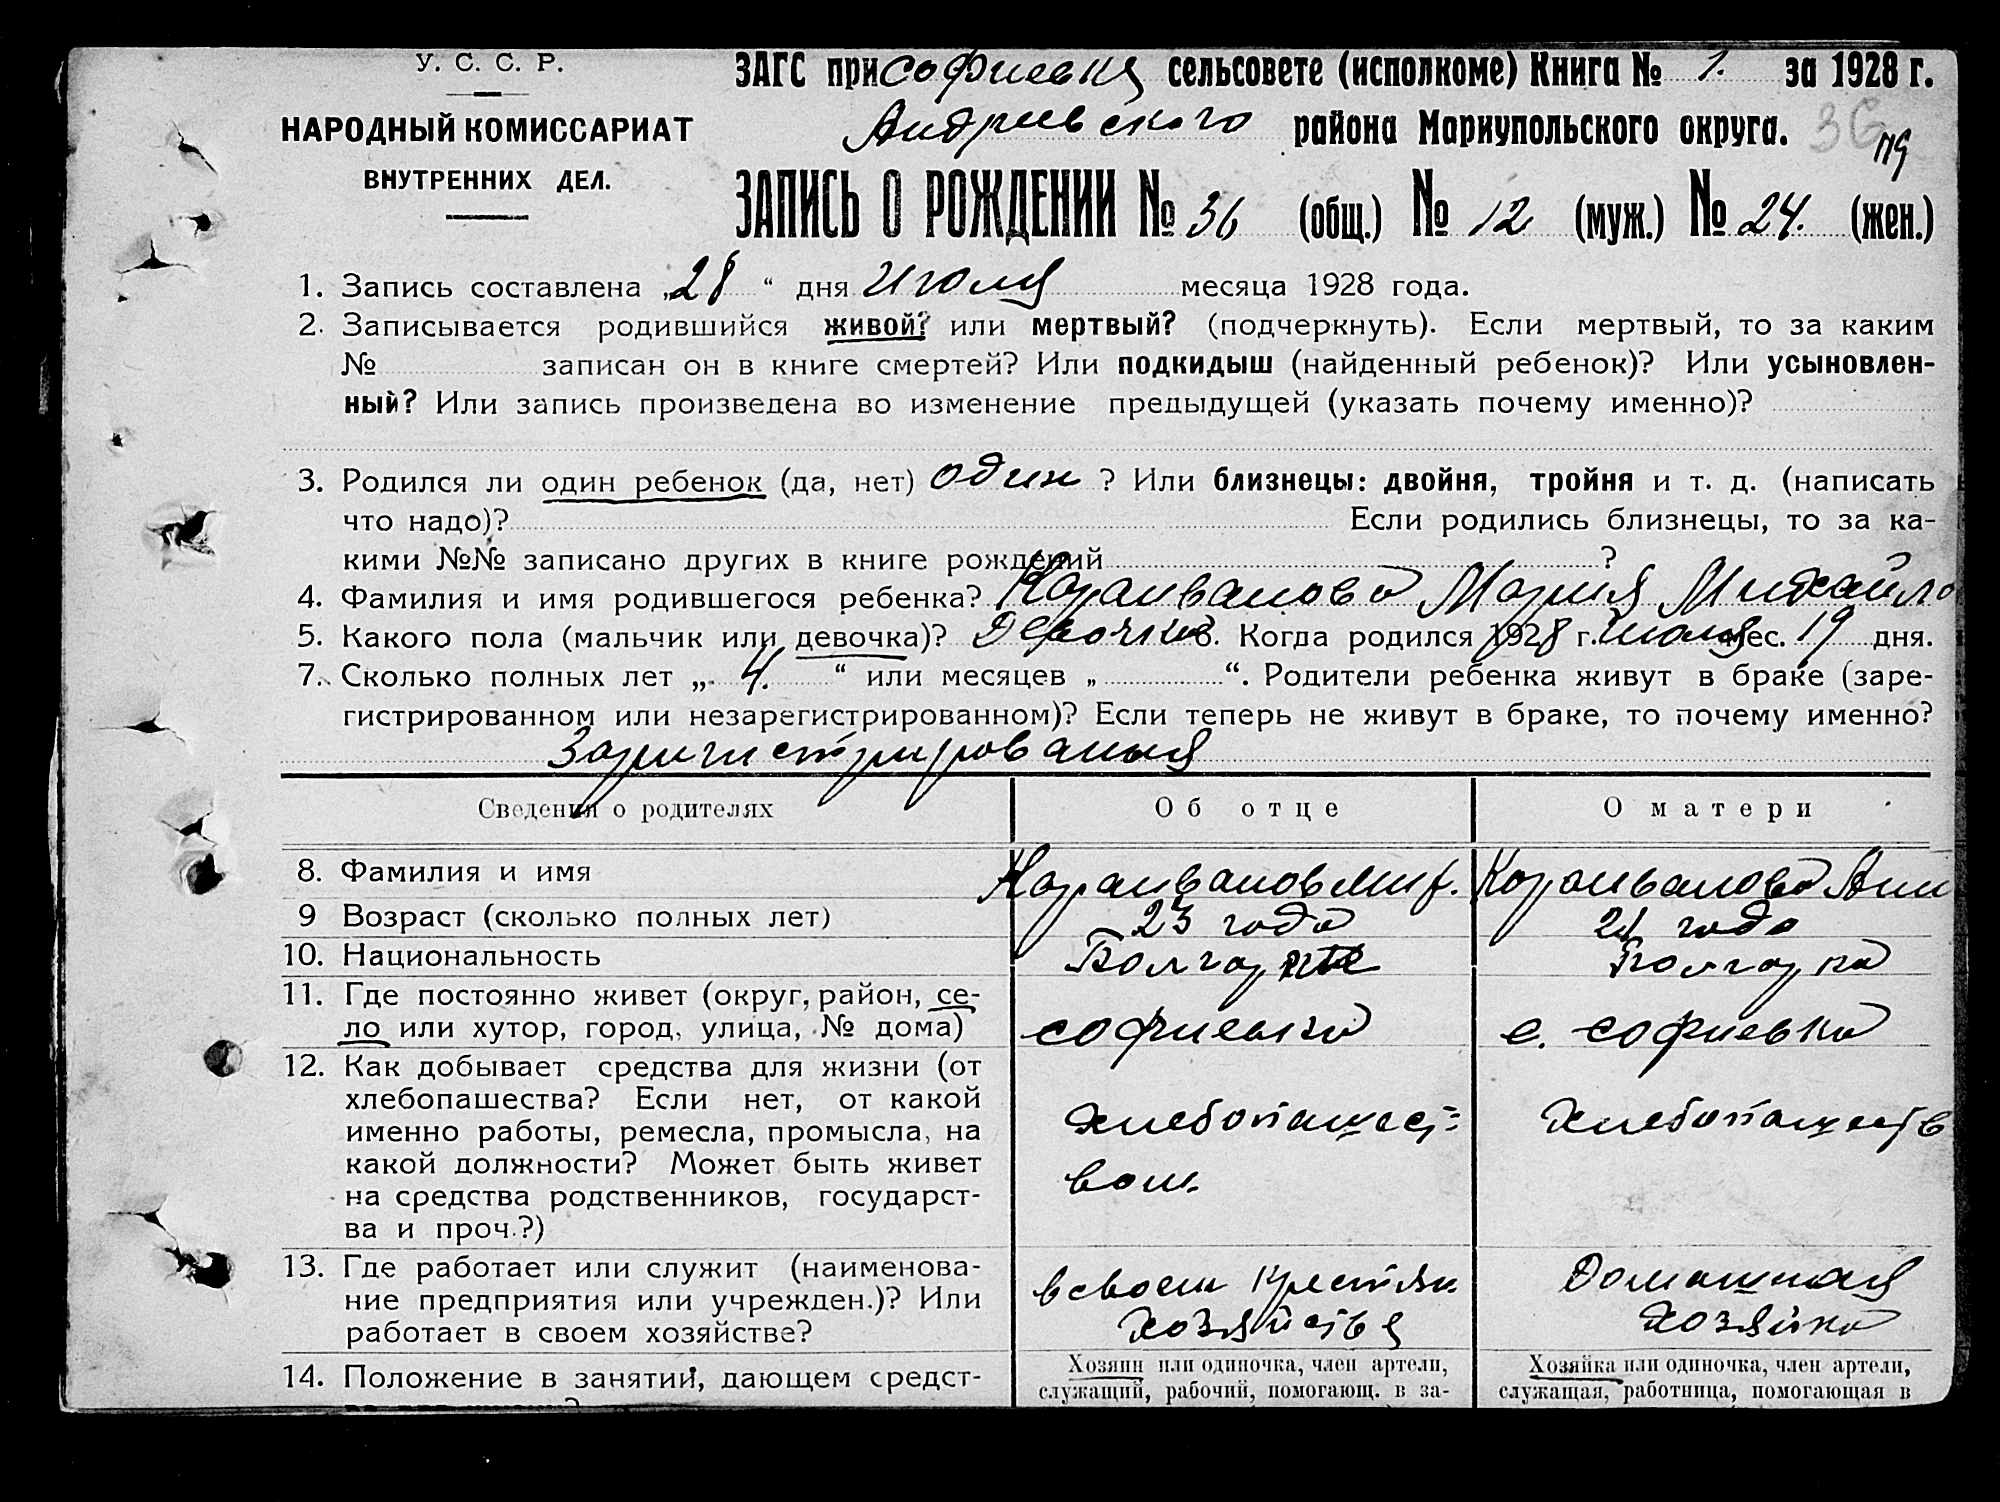 У. С. С. Р.
НАРОДНЫЙ КОМИССАРИАТ
ВНУТРЕННИХ ДЕЛ.
ЗАГС при Софиевка сельсовете (исполкоме) Книга № 1. за 1928 г.
Андриевского района Мариупольского округа. 36
119
ЗАПИСЬ О РОЖДЕНИИ № 36 (общ.) № 12 (муж.) № 24. (жен.)
1. Запись составлена „28“ дня Июля месяца 1928 года.
2. Записывается родившийся живой? или мертвый? (подчеркнуть). Если мертвый, то за каким
№ записан он в книге смертей? Или подкидыш (найденный ребенок)? Или усыновлен-
ный? Или запись произведена во изменение предыдущей (указать почему именно)?
3. Родился ли один ребенок (да, нет) один ? Или близнецы: двойня, тройня и т. д. (написать
что надо)? Если родились близнецы, то за ка-
кими №№ записано других в книге рождений ?
4. Фамилия и имя родившегося ребенка? Караиванова Мария Михайло
5. Какого пола (мальчик или девочка)? Девочка 6. Когда родился 1928 г. Июля мес. 19 дня.
7. Сколько полных лет „ 4. “ или месяцев „ “. Родители ребенка живут в браке (заре-
гистрированном или незарегистрированном)? Если теперь не живут в браке, то почему именно?
Заригистрированыя
Сведения о родителях Об отце О матери
8. Фамилия и имя Караиванов Мих. Караиванова Анн
9 Возраст (сколько полных лет) 23 года 21 года
10. Национальность Болгарка
11. Где постоянно живет (округ, район, се-
ло или хутор, город, улица, № дома) Софиевка с. Софиевка
12. Как добывает средства для жизни (от
хлебопашества? Если нет, от какой
именно работы, ремесла, промысла, на хлебопашест= хлебопашеств
какой должности? Может быть живет
на средства родственников, государст- вом.
ва и проч.?)
13. Где работает или служит (наименова- в своем крестьян. Домашная
ние предприятия или учрежден.)? Или хозяйстве хозяйка
работает в своем хозяйстве?
14. Положение в занятии, дающем средст- Хозяин или одиночка, член артели, Хозяйка или одиночка, член артели,
служащий, рабочий, помогающ. в за- служащая, работница, помогающая в